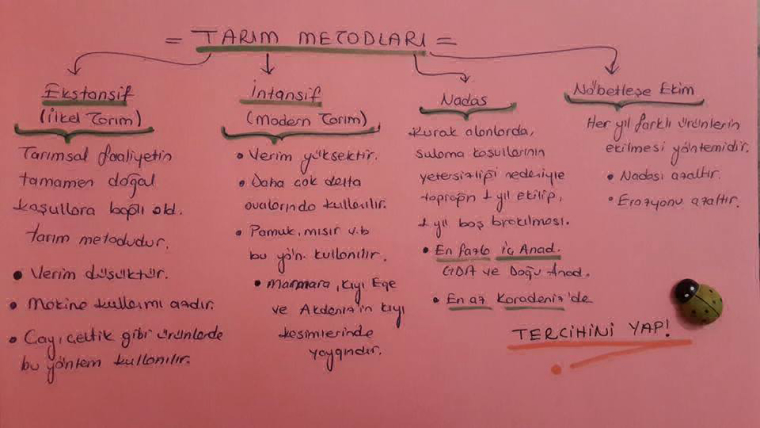 = TARIM METODLARI =
Ekstansif
(İlkel Tarım)
Tarımsal faaliyetin
tamamen doğal
koşullara bağlı old.
tarım metodudur.
• Verim düşüktür.
• Makine kullanımı azdır.
• Çay, çeltik gibi ürünlerde
bu yöntem kullanılır.
İntansif
(Modern Tarım)
• Verim yüksektir.
• Daha çok delta
ovalarında kullanılır.
• Pamuk, mısır v.b
bu yön. kullanılır.
• Marmara, Kıyı Ege
ve Akdeniz'in kıyı
kesimlerinde
yaygındır.
Nadas
Kurak alanlarda,
sulama koşullarının
yetersizliği nedeniyle
toprağın 1 yıl ekilip,
1 yıl boş bırakılması.
• En fazla iç Anad.
GDA ve Doğu Anad.
• En az Karadeniz'de.
Nöbetleşe Ekim
Her yıl farklı ürünlerin
ekilmesi yöntemidir.
• Nadası azaltır.
• Erozyonu azaltır.
TERCİHİNİ YAP!